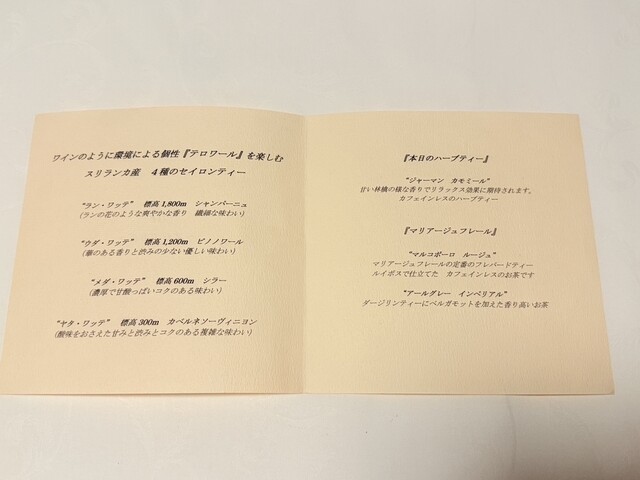 ワインのように環境による個性『テロワール』を楽しむ
スリランカ産　４種のセイロンティー
“ラン・ワッテ”　標高1,800m　シャンパーニュ
(ランの花のような爽やかな香り　繊細な味わい)
“ウダ・ワッテ”　標高1,200m　ピノノワール
(華のある香りと渋みの少ない優しい味わい)
“メダ・ワッテ”　標高600m　シラー
(濃厚で甘酸っぱいコクのある味わい)
“ヤタ・ワッテ”　標高300m　カベルネソーヴィニヨン
(酸味をおさえた甘みと渋みとコクのある複雑な味わい)
『本日のハーブティー』
“ジャーマン　カモミール”
甘い林檎の様な香りでリラックス効果に期待されます。
カフェインレスのハーブティー
『マリアージュフレール』
“マルコポーロ　ルージュ”
マリアージュフレールの定番のフレバードティー
ルイボスで仕立てた　カフェインレスのお茶です
“アールグレー　インペリアル”
ダージリンティーにベルガモットを加えた香り高いお茶